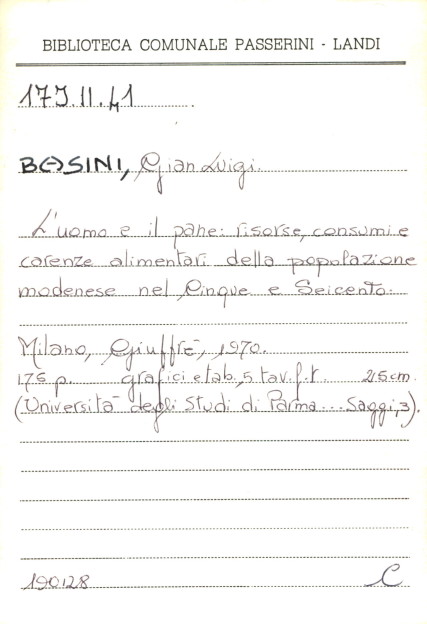 BIBLIOTECA COMUNALE PASSERINI - LANDI
17J.II.41
BASINI, Gian Luigi.
L'uomo e il pane: risorse, consumi e
carenze alimentari della popolazione
modenese nel Cinque e Seicento.
Milano, Giuffrè, 1970.
176 p. grafici e tab., 5 tav. f.t. 25 cm
(Università degli Studi di Parma... Saggi, 3).
190128
C